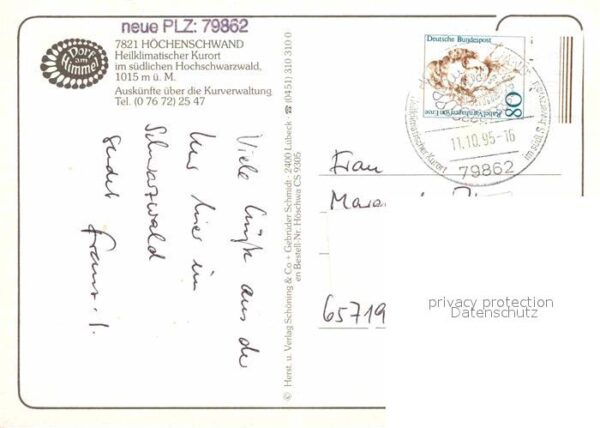 neue PLZ: 79862
Dorf
am
Himmel
7821 HÖCHENSCHWAND
Heilklimatischer Kurort
im südlichen Hochschwarzwald,
1015 m ü. M.
Auskünfte über die Kurverwaltung
Tel. (0 76 72) 25 47
Viele Grüße aus der
Kur hier im
Schwarzwald
sendet
© Herst. u. Verlag Schöning & Co + Gebrüder Schmidt · 2400 Lübeck ☎ (0451) 310 310 0
en Bestell-Nr. Höschwa CS 9305
Deutsche Bundespost
80
Rahel Varnhagen von Ense
Heilklimatischer Kurort
11.10.95-16
im südl. Schwarzwald
79862
Frau
65719
privacy protection
Datenschutz